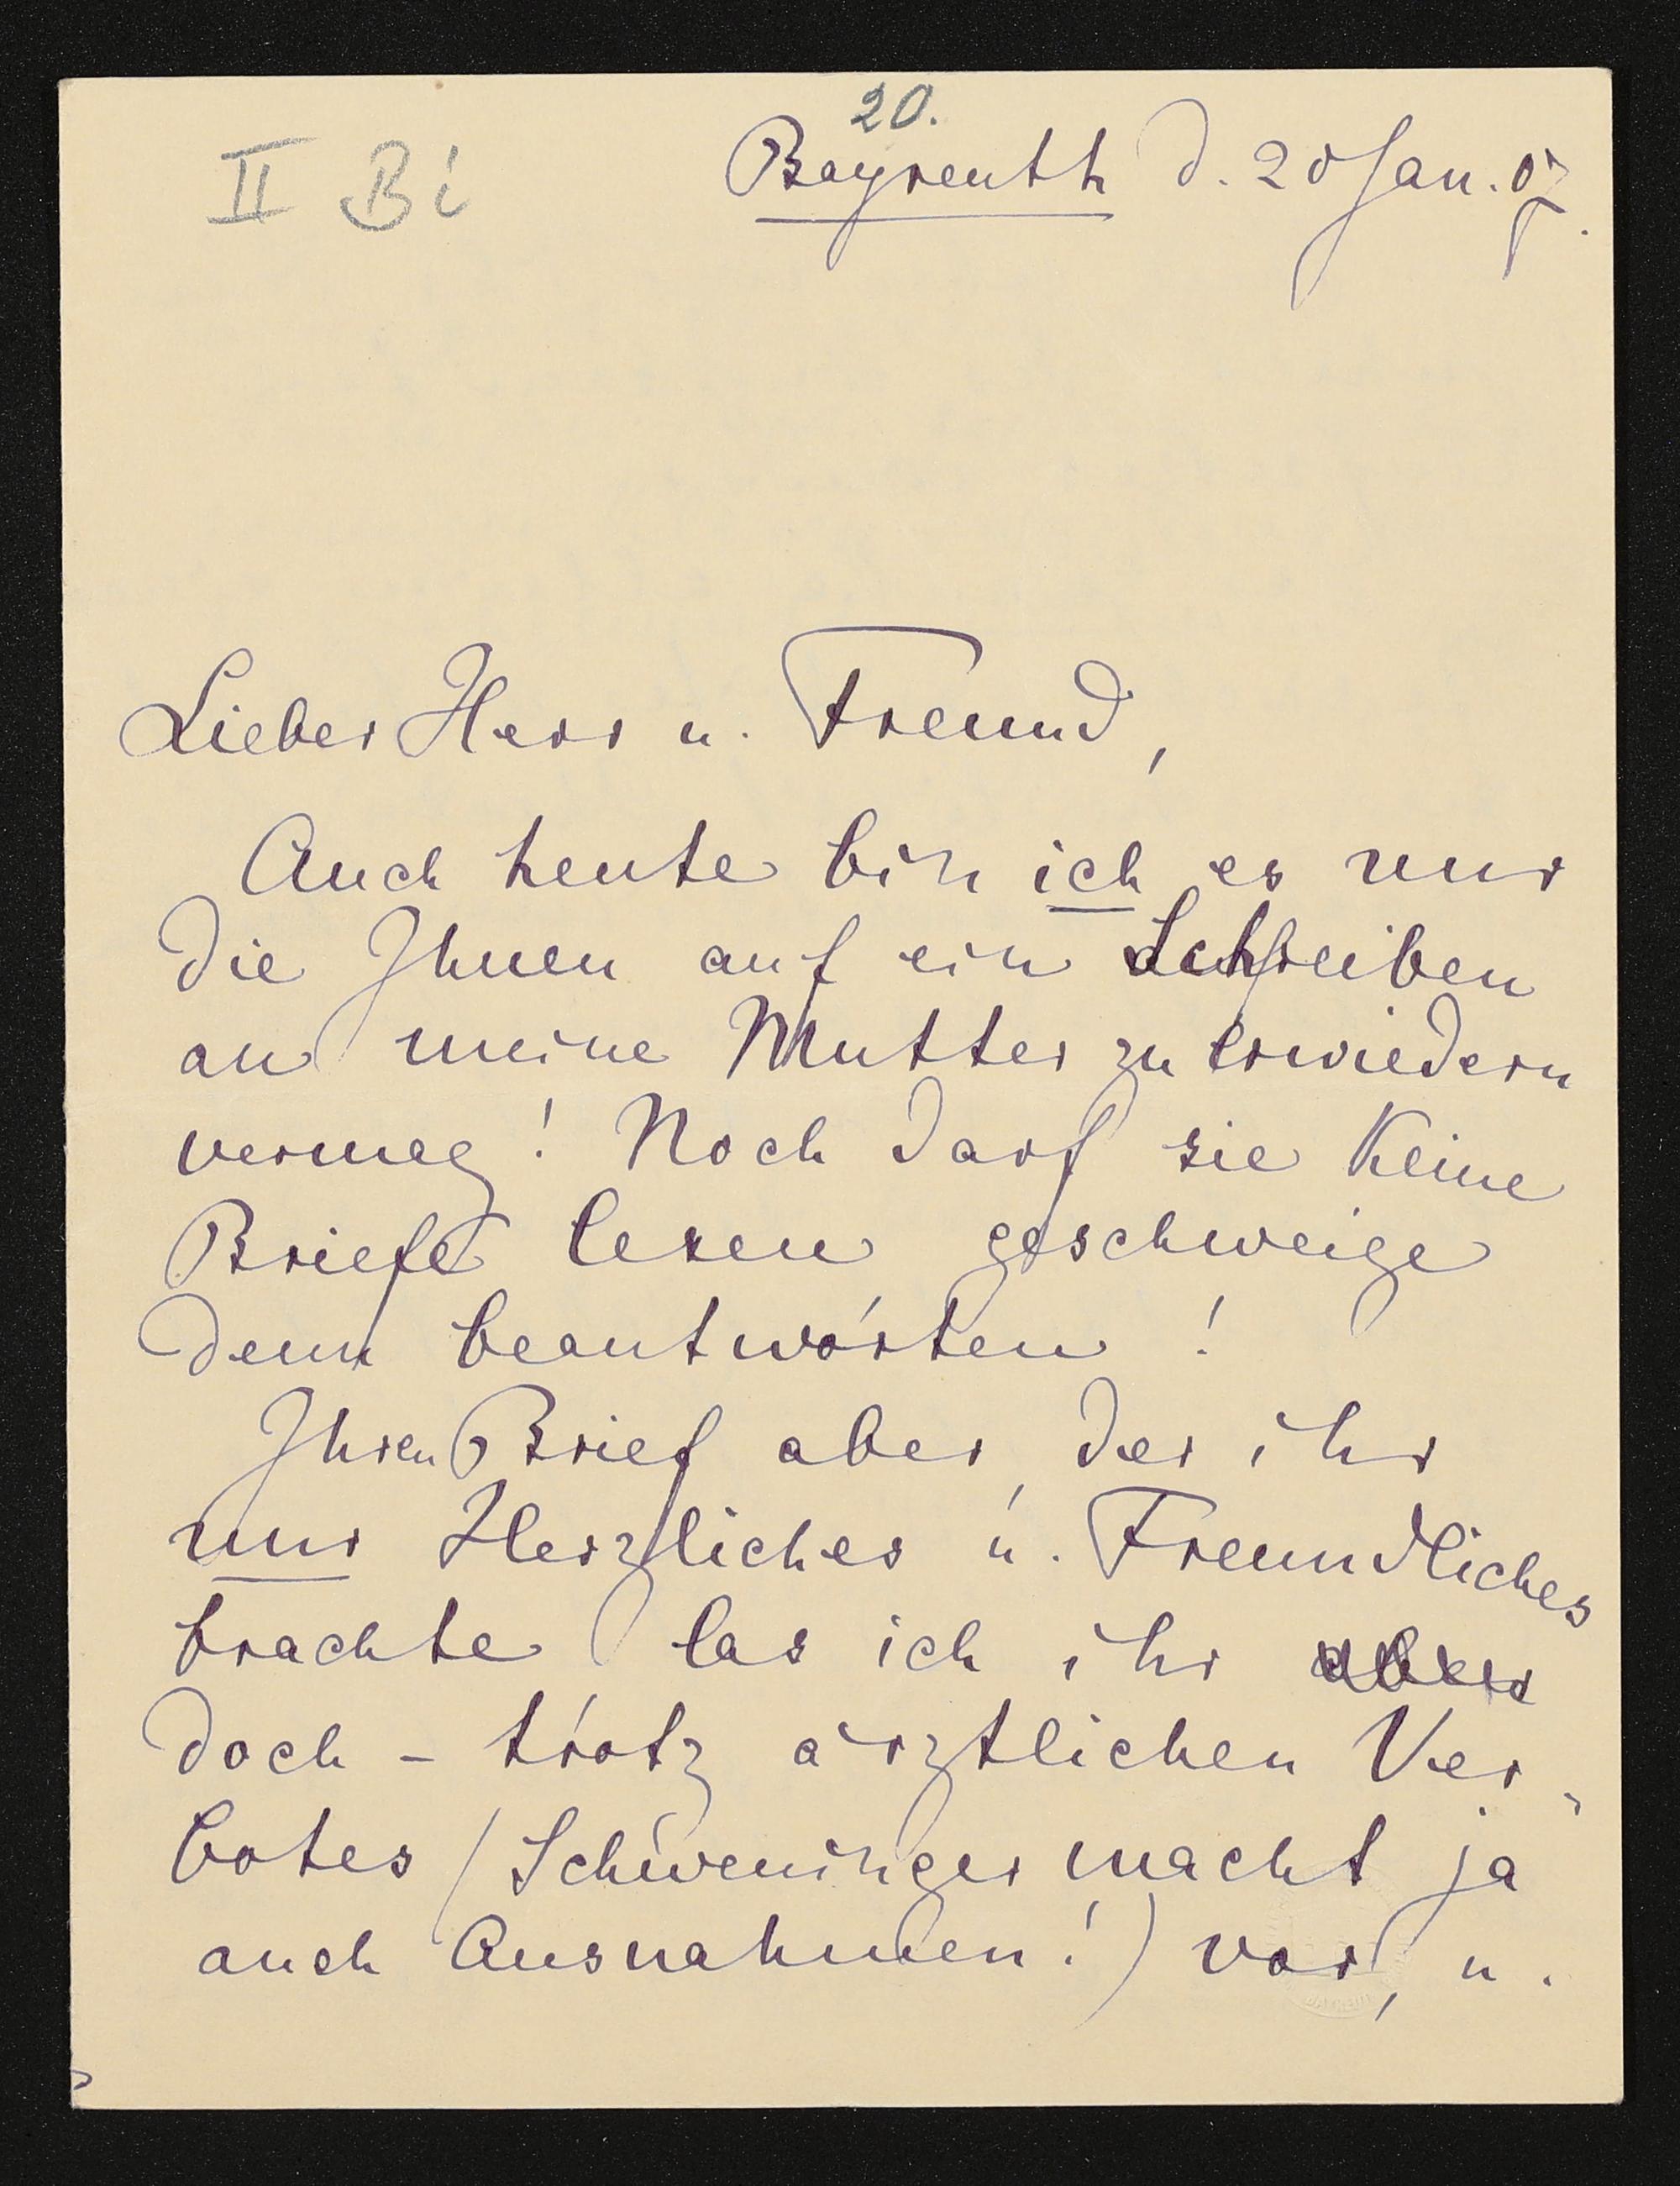 20.
II Bi
Bayreuth d. 20 Jan. 07.
Lieber Herr u. Freund,
Auch heute bin ich es nur
die Ihnen auf ein Schreiben
an meine Mutter zu erwiedern
vermag! Noch darf sie keine
Briefe lesen geschweige
denn beantworten!
Ihren Brief aber, der ihr
nur Herzliches u. Freundliches
brachte las ich ihr aber
doch - trotz ärztlichen Ver-
botes (Schweninger macht ja
auch Ausnahmen!) vor, u.